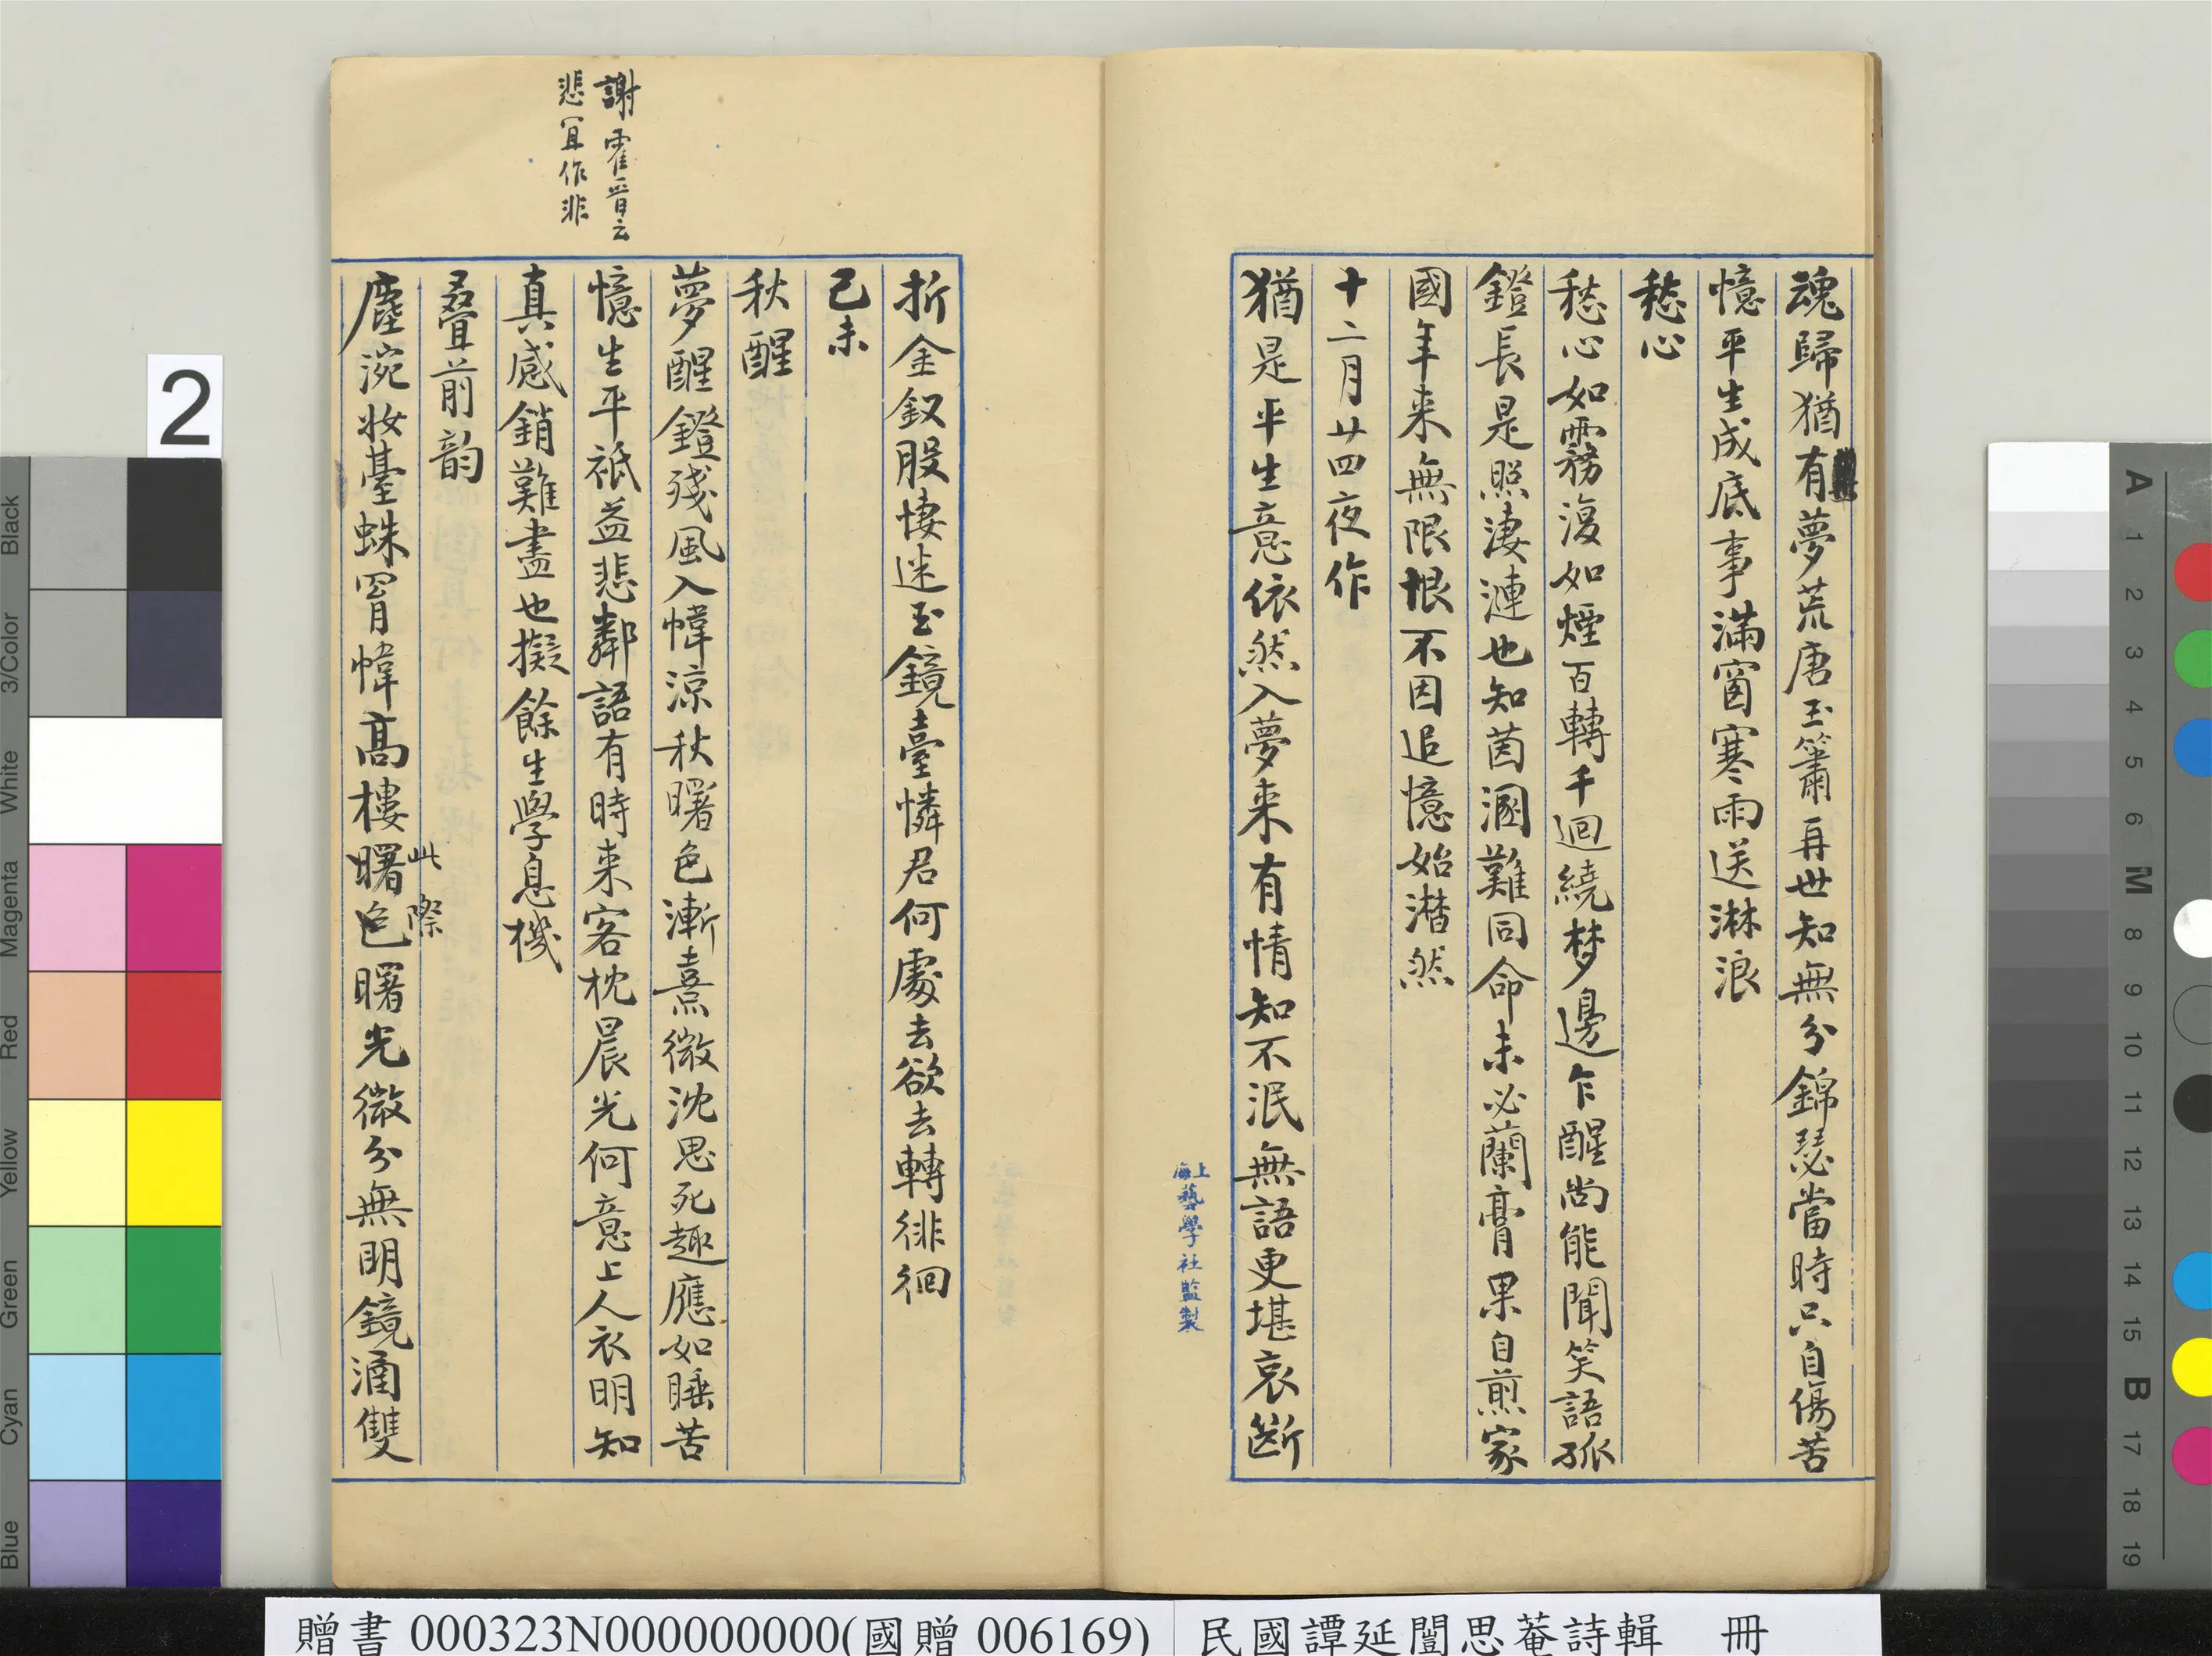 魂歸猶有夢荒唐玉簫再世知無分錦瑟當時只自傷苦
憶平生成底事滿窗寒雨送淋浪
愁心
愁心如霧復如煙百轉千迴繞梦邊乍醒尚能聞笑語孤
鐙長是照淒漣也知茵溷難同命未必蘭膏果自煎家
國年来無限恨不因追憶始潸然
十二月廿四夜作
猶是平生意依然入夢来有情知不泯無語更堪哀斷
上海藝學社監製
折金釵股悽迷玉鏡臺憐君何處去欲去轉徘徊
己未
秋醒
夢醒鐙殘風入幃涼秋曙色漸熹微沈思死趣應如睡苦
憶生平祇益悲鄰語有時来客枕晨光何意上人衣明知
真感銷難盡也擬餘生學息機
謝霍晉云
悲宜作非
疊前韵
塵涴妝臺蛛罥幃高樓曙色曙光微分無明鏡涌雙
此際
2
贈書 000323N000000000(國贈 006169)
民國譚延闓思菴詩輯 冊
Black
3/Color
White
Magenta
Red
Yellow
Green
Cyan
Blue
A 1 2 3 4 5 6 M 8 9 10 11 12 13 14 15 B 17 18 19